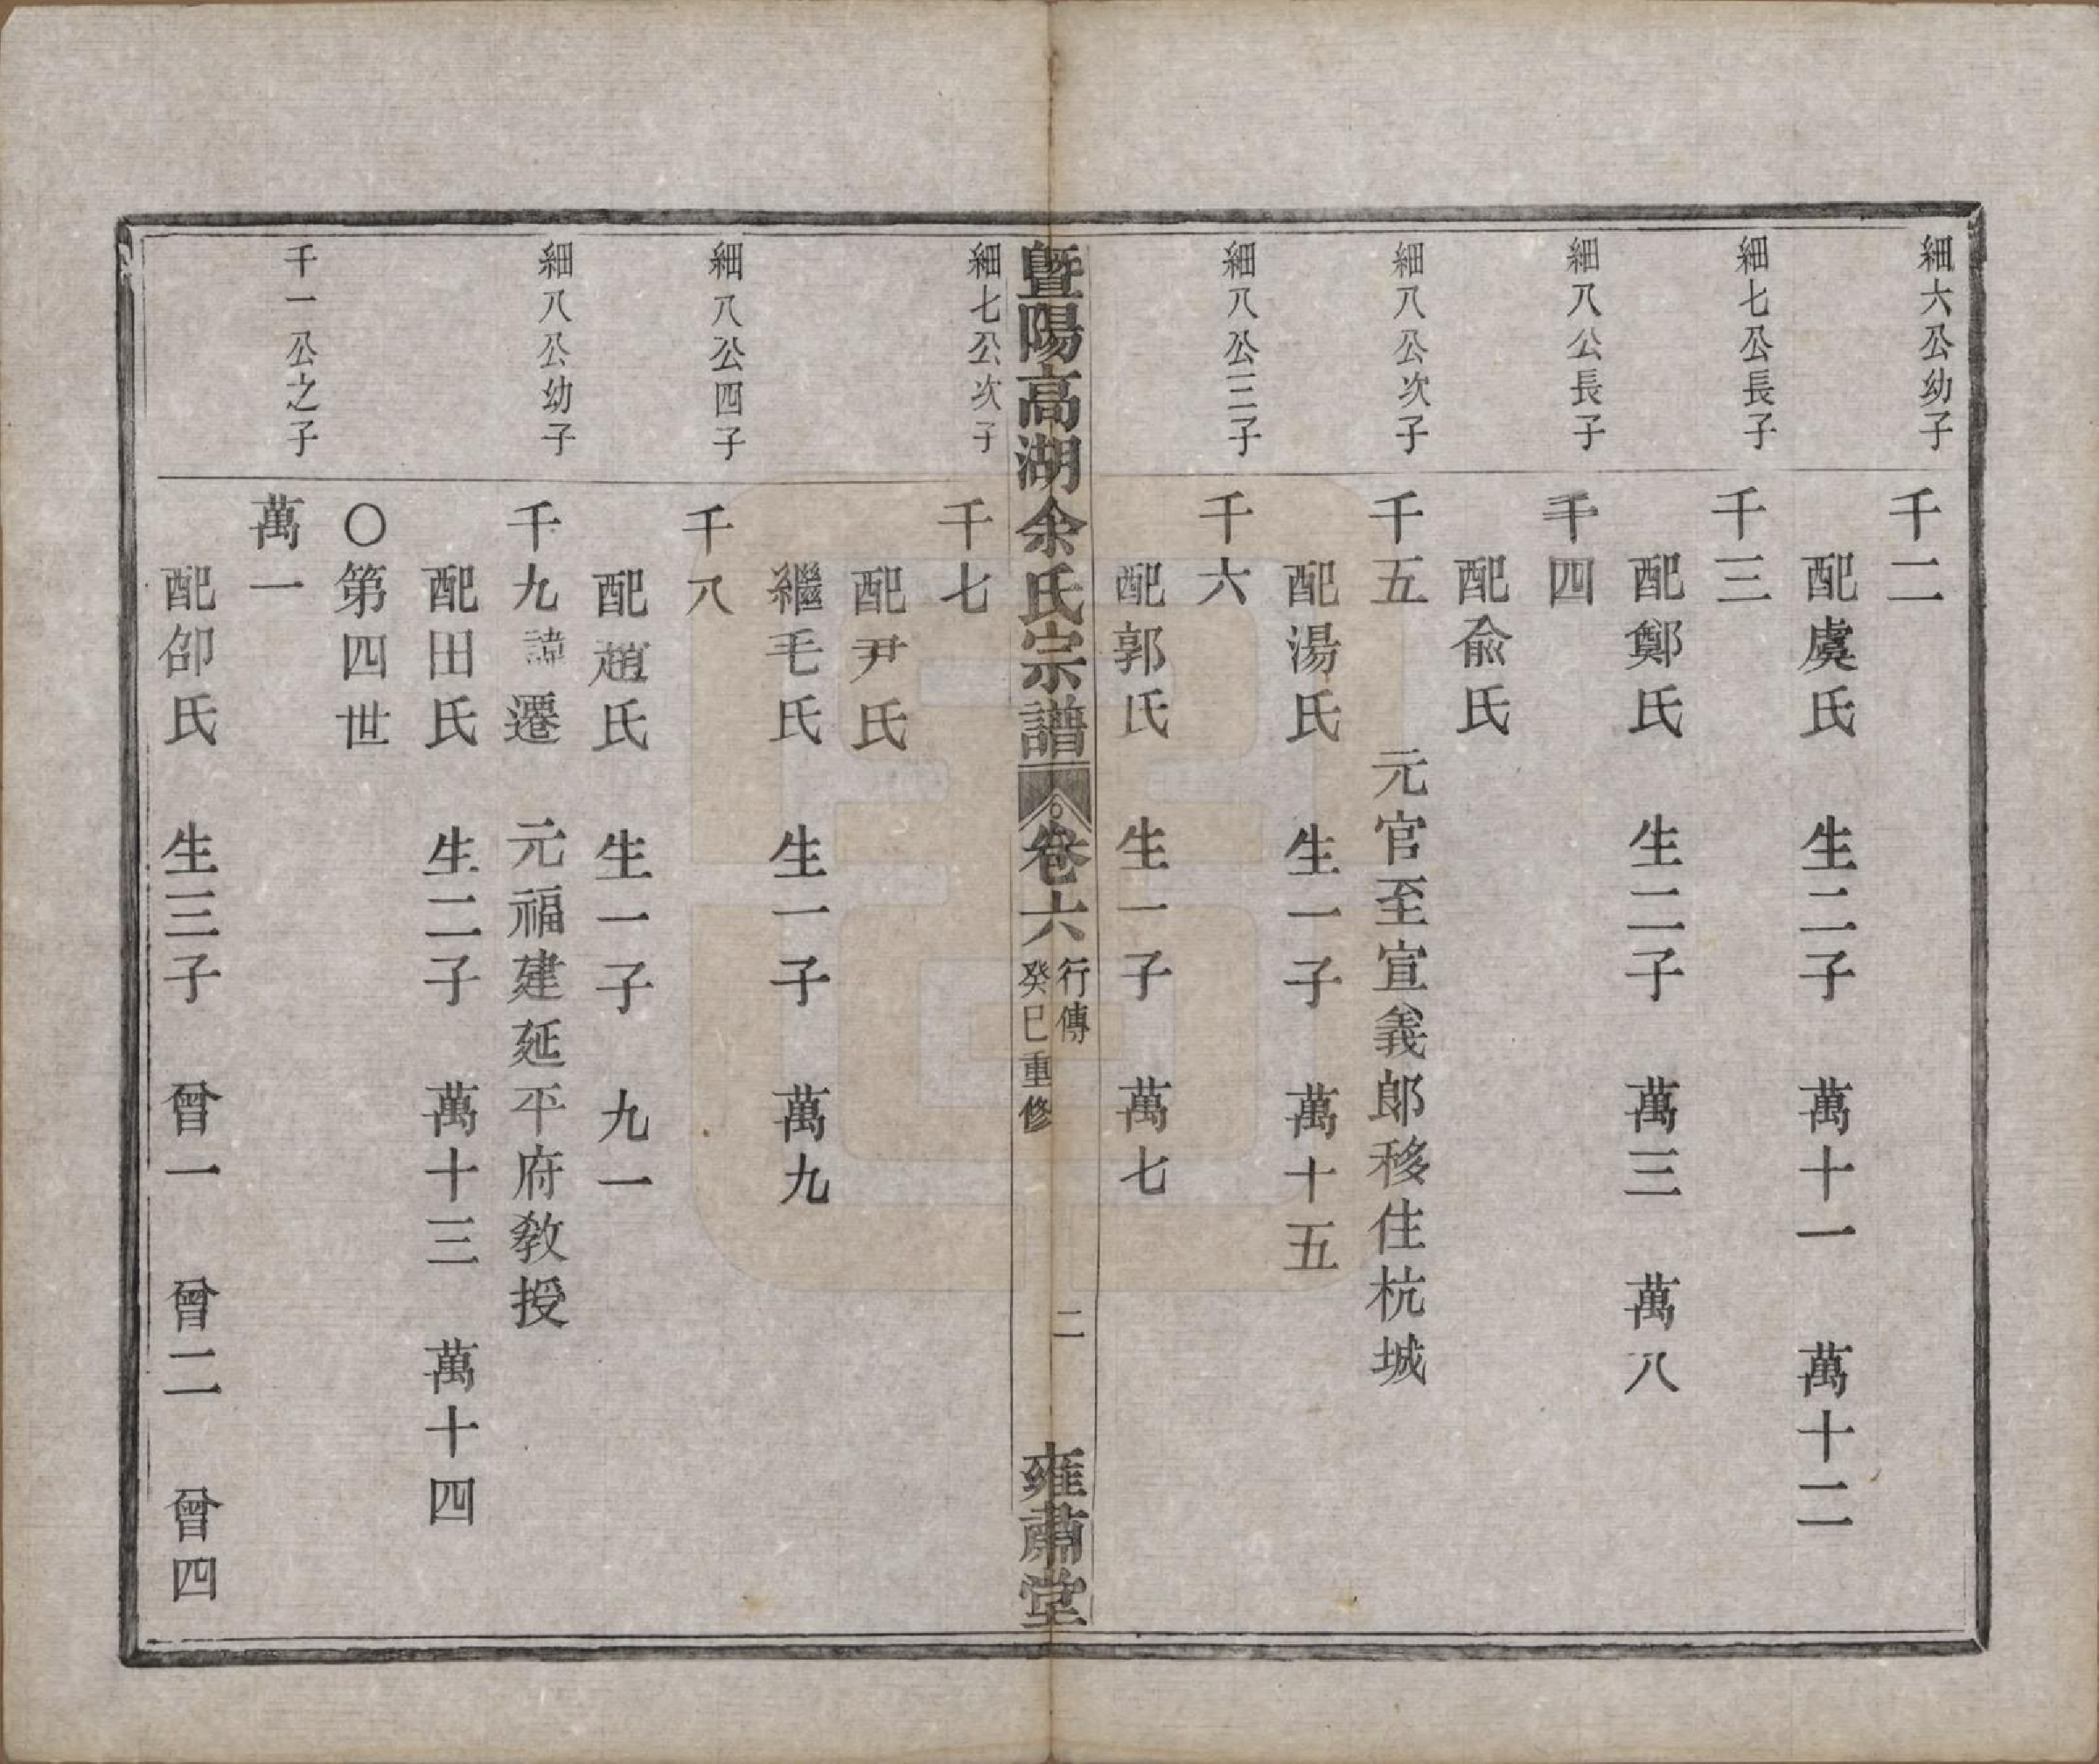 細六公幼子
千二
配虞氏 生二子 萬十一 萬十二
細七公長子
千三
配鄭氏 生二子 萬三 萬八
細八公長子
千四
配俞氏
細八公次子
千五 元官至宣義郎移住杭城
配湯氏 生一子 萬十五
細八公三子
千六
配郭氏 生一子 萬七
暨陽高湖余氏宗譜 卷六 行傳 癸巳重修 二 雍肅堂
細七公次子
千七
配尹氏
繼毛氏 生一子 萬九
細八公四子
千八
配趙氏 生一子 九一
細八公幼子
千九 諱遷 元福建延平府教授
配田氏 生二子 萬十三 萬十四
〇第四世
千一公之子
萬一
配邵氏 生三子 曾一 曾二 曾四